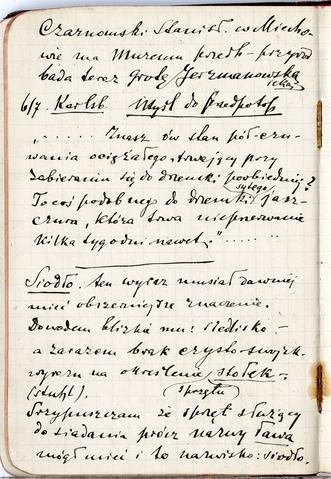 Czarnowski Stanisł. w Miecho-
wie ma Muzeum przedh-przyrod
bada teraz grotę Jerzmanowską
6/7. Karlsb. Myśl do Przedpotop
"..... Znasz ów stan pół-czu-
wania ociężałego, trwający przy
zabieraniu się do drzemki poobiedniej?
sytego
To coś podobnego do drzemki jasz-
czura, która trwa nieprzerwanie
kilka tygodni nawet." ......
Siodło. Ten wyraz musiał dawniej
mieć obszerniejsze znaczenie.
Dowodem blizkie mu: siedlisko –
a zarazem brak czysto-swojsk.
wyrazu na określenie stołek –
(stuhl). sprzętu
Przypuszczam że sprzęt służący
do siadania prócz nazwy ława
mógł mieć i to nazwisko: siodło.